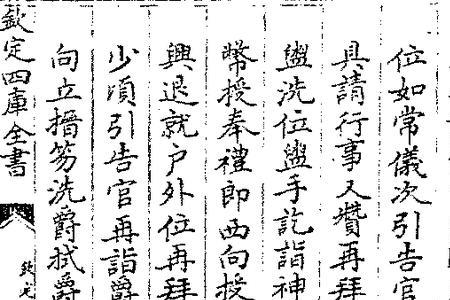 位如常儀次引告官
具請行事又贊再拜
盥洗位盥手訖詣神
幣授奉禮郎西向授
興退就户外位再拜
少頃引告官再詣爵
向立搢笏洗爵拭爵
欽定四庫全書
欽定